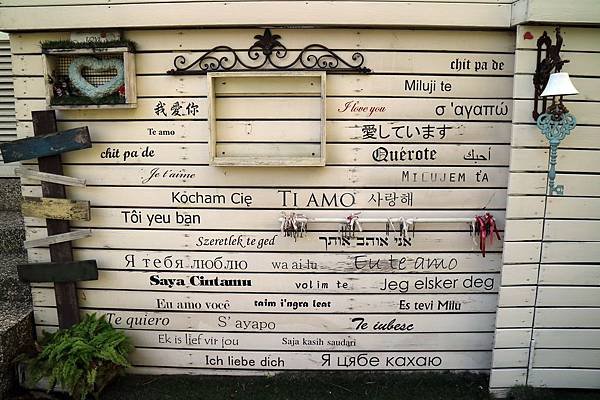 chit pa de
Miluji te
我愛你
I love you
σ 'αγαπώ
Te amo
愛しています
chit pa de
Quérote
أحبك
Je t'aime
MILUJEM ŤA
Kócham Cię
TI AMO
사랑해
Tôi yeu bạn
Szeretlek te ged
אני אוהב אותך
Я тебя люблю
wa ai lu
Eu te amo
Saya Cintamu
volim te
Jeg elsker deg
Eu amo você
taim i'ngra leat
Es tevi Milu
Te quiero
S' ayapo
Te iubesc
Ek is lief vir jou
Saja kasih saudari
Ich liebe dich
Я цябе кахаю